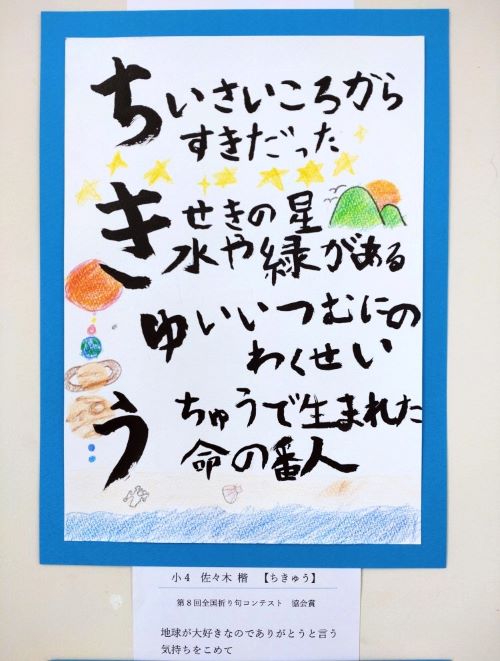 ちいさいころから
すきだった
きせきの星
水や緑がある
ゆいいつむにの
わくせい
うちゅうで生まれた
命の番人
小4 佐々木 楷 【ちきゅう】
第8回全国折り句コンテスト 協会賞
地球が大好きなのでありがとうと言う
気持ちをこめて